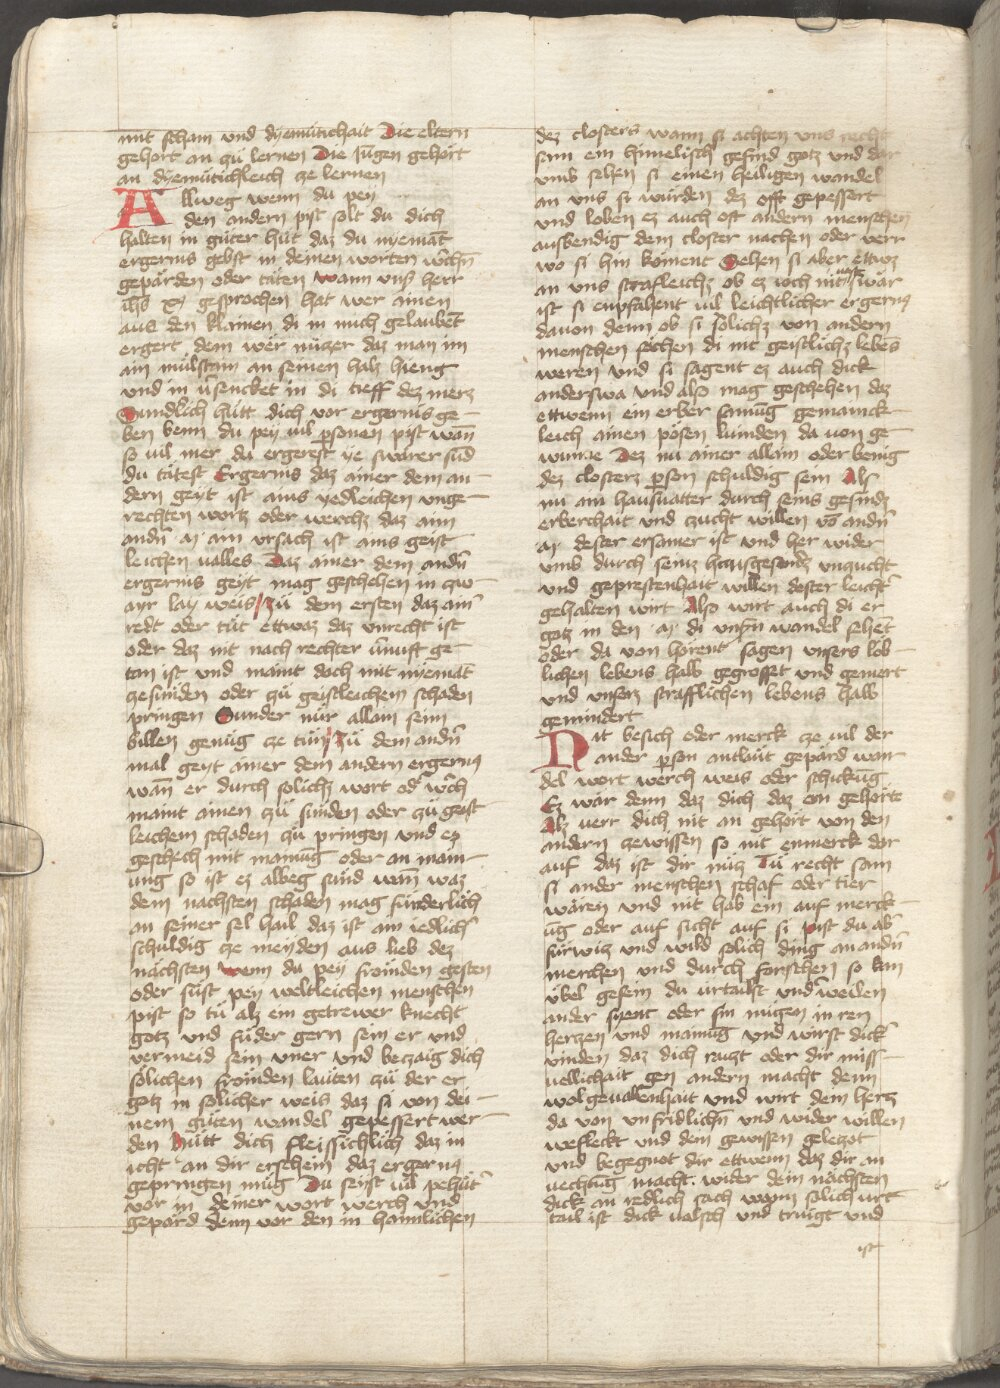 mit scham und dyemütichait Die eltern
gehört an zü lernen Die Jügen gehört
an dyemütichleich ze lernen
Allweg wenn du pey
den andern pist solt du dich
halten in güter hüt daz du nyemāt
ergernis gebst in deinen worten
gepärden oder täten wann unß herr
gesprochen hat wer ainen
aus den klainen di in mich gelaubēt
ergert dem wer nüczer daz man im
ain mülstain an seinen hals hieng
und in v̄sencket in di tieff dez merz
Sundlich hütt dich vor ergernis ge-
ben benn du pey vil psonen pist wān
so vil mer du ergerest ye swärer sūd
du tätest Ergernis daz ainer dem an-
dern geyt ist ains yedleichen unge-
rechten wortz oder werchz daz aim
andn̄ ain ursach ist ains geist-
leichen valles Daz ainer dem andn̄
ergernis geyt mag geschehen in zw-
ayr lay weis Zü dem ersten daz ain̄
redt oder tüt ettwaz daz unrecht ist
oder daz nit nach rechter v̄nuift ge-
tan ist und maint doch mit nyemāt
ze sünden oder zü geistleichem schaden
pringen Sunder nür allain seim
billen genüg ze tün Zü dem andn̄
mal geyt ainer dem andern ergernis
wān er durch solichz wort od̄ w̄ch
maint ainen zü sünden oder zü geist-
leichem schaden zü pringen und ez
geschech mit mainūg oder an main-
ung so ist ez albeg sünd wān waz
dem nächsten schaden mag fürderlich
an seiner sel hail daz ist ain iedlich̄
schuldig ze meyden aus lieb dez
nächsten wenn du pey fröinden gesten
oder süst pey weltleichen menschen
pist so tü alz ein getrewer knecht
gotz und füder gern sein er und
vermeid sein uner und beczaig dich
sölichen fröinden lauten zü der er
gotz in solicher weis daz si von dei-
nem güten wandel gepessert wer-
den Hütt dich fleissichlich daz in
icht an dir erschein daz ergernis
gepringen müg Du seyst vil pehüt̄
vor in deiner wort werch und
gepärd denn vor den in haimlichen
dez closters wann si achten uns recht
sam ein himelisch gesind gotz und dar
umb sehen si einen heiligen wandel
an uns si würden dez offt gepessert
und loben ez auch oft andern menschen
auswendig dem closter nachen oder verr
wo si hin koment Sehen si aber ettwz
an uns strafleichz ob ez ioch nit swär
ist si enpfahent vil leichtlicher ergernis
dauon denn ob si solichz von andern
menschen sechen di nit geistlichz lebēs
weren und si sagent ez auch dick
anderswa und also mag geschehen daz
ettwenn ein erber samūg gemainck-
leich ainen pösen lüinden da von ge-
wunne Dez nu ainer allain oder benig
dez closterz pson schuldig sein Als
nu ain hausvatter durch seins gesindz
erberchait und zucht willen vō andn̄
dester ersamer ist und her wider
umb durch seinz hausgesindz unzucht
und geprestenhait willen dester leicht̄
gehalten wirt Also wirt auch di er
gotz in den di unsern wandel sehēt
oder da von hörent sagen unsers löb-
lichen lebens halb gegrösset und gemert
und unserz strafflichen lebens halb
gemindert
Nit besich oder merck ze vil der
ander pson antlüt gepärd wan-
del wort werch weis oder schickūg
Ez wär denn daz dich daz ein gehörte
Alz verr dich nit an gehört von den
andern zewissen so nit enmerck dar
auf daz ist dir nücz Tü recht sam
si ander menschen schaf oder tier
wären und nit hab ein auf merck-
ūg oder auf sicht auf si pist du ab̄
fürwitz und wild solich ding an andn̄
merchen und durch forschen so kan
übel gesein du urtailst und̄weilen
ander herczen
herczen und mainūg und wirst dick
vinden daz dich rewt oder dir miss-
vellichait gen andern macht denn
wolgevallenhait und wirt dem hertz
da von unfridlichn̄ und wider willen
vefleckt und dem gewissen geleczot
und begegnot dir ettwenn daz dir an
vechtūg macht wider dein nächsten
dick an redlich sach wann solich urt-
tail ist dick valsch und triugt und
ist